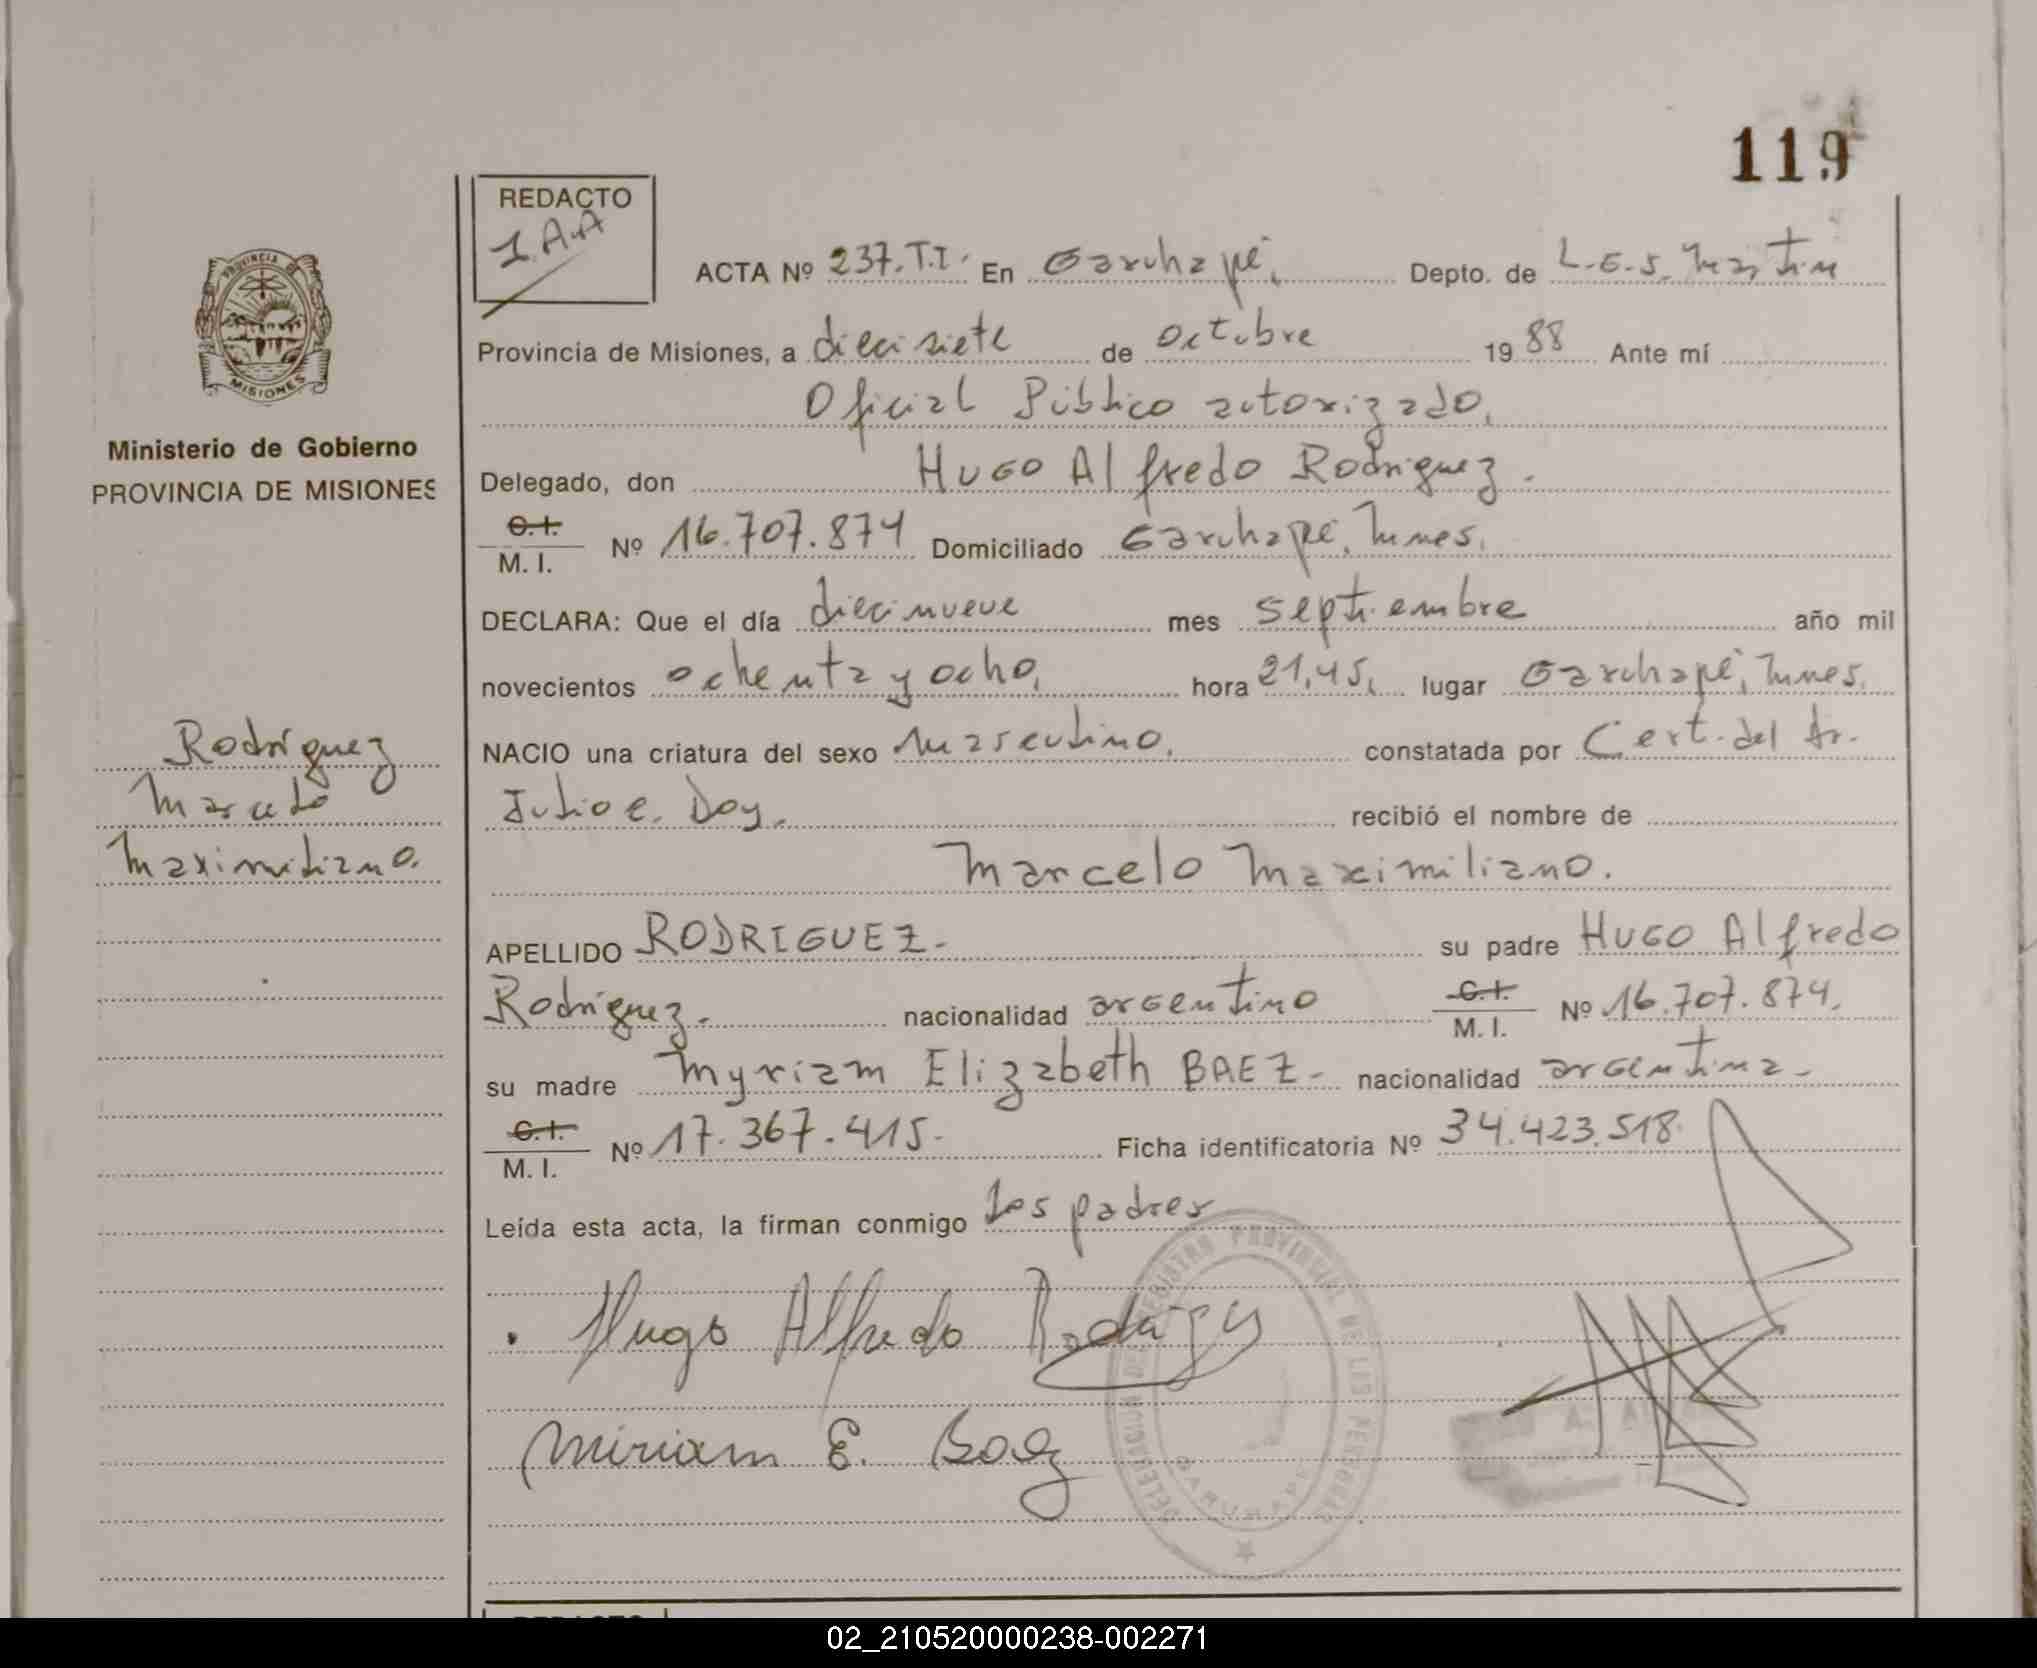 119
REDACTO
I.A.A
ACTA Nº 237.T.I. En Garuhapé, Depto. de L.G.S. Martin
Provincia de Misiones, a diecisiete de octubre 1988 Ante mí
Oficial Público autorizado,
Delegado, don Hugo Alfredo Rodriguez.
C.I.
M. I. Nº 16.707.874 Domiciliado Garuhapé, Mnes.
DECLARA: Que el día diecinueve mes septiembre año mil
novecientos ochenta y ocho, hora 21,45, lugar Garuhapé, Mnes.
NACIO una criatura del sexo masculino, constatada por Cert. del dr.
Julio e. Doy. recibió el nombre de
Marcelo Maximiliano.
APELLIDO RODRIGUEZ.- su padre Hugo Alfredo
Rodríguez.- nacionalidad argentino C.I. M. I. Nº 16.707.874.
su madre Myriam Elizabeth BAEZ- nacionalidad argentina-
C.I.
M. I. Nº 17.367.415.- Ficha identificatoria Nº 34.423.518.
Leída esta acta, la firman conmigo los padres
Hugo Alfredo Rodriguez
Miriam E. Baez
DELEGACION DEL REGISTRO PROVINCIAL DE LAS PERSONAS
GARUHAPE
PROVINCIA DE
MISIONES
Ministerio de Gobierno
PROVINCIA DE MISIONES
Rodríguez
Marcelo
Maximiliano.
02_210520000238-002271